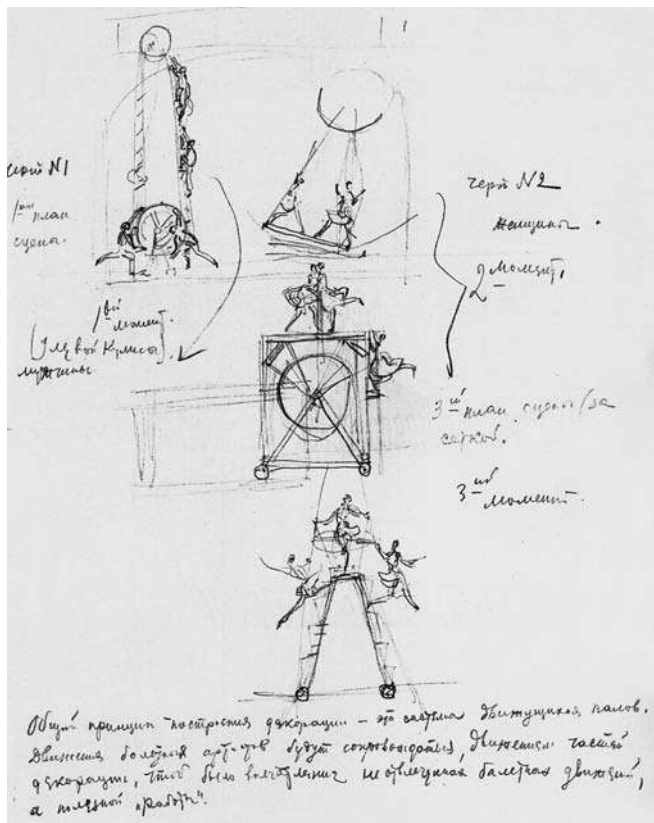 черт N1
1ый план
сцены.
1ый момент.
(у левой кулисы).
мужчины.
черт N2
женщины.
2 момент.
3ий план сцены (за
сеткой.
3ий момент.
Общий принцип построения декорации – это система движущихся
Движения балетных артистов будут сопровождаться движением частей
декорации, чтоб было впечатление не отвлеченных балетных движений,
а полезной „работы“.